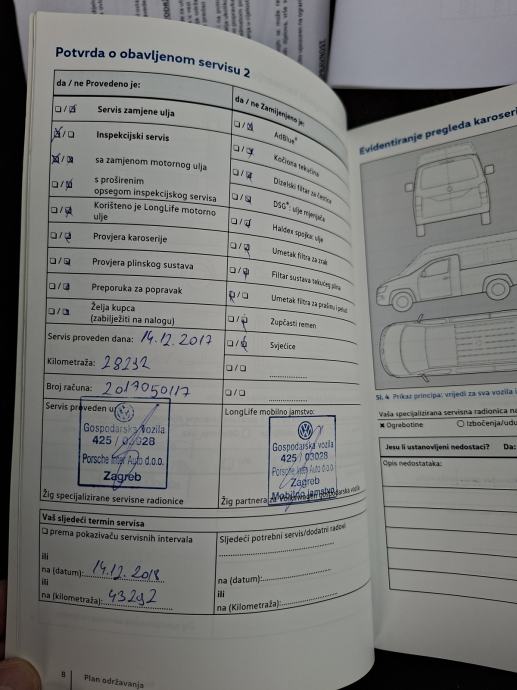 Potvrda o obavljenom servisu 2
da / ne Provedeno je:
Servis zamjene ulja
Inspekcijski servis
sa zamjenom motornog ulja
s proširenim
opsegom inspekcijskog servisa
Korišteno je LongLife motorno
ulje
Provjera karoserije
Provjera plinskog sustava
Preporuka za popravak
Želja kupca
(zabilježiti na nalogu)
da / ne Zamijenjeno je:
AdBlue®
Kočiona tekućina
Dizelski filtar za čestice
DSG®: ulje mjenjača
Haldex spojka: ulje
Umetak filtra za zrak
Filtar sustava tekućeg plina
Umetak filtra za prašinu i pelud
Zupčasti remen
Svjećice
Servis proveden dana: 14.12.2017
Kilometraža: 28232
Broj računa: 2017050117
Servis proveden u:
Gospodarska vozila
425 / 03028
Porsche Inter Auto d.o.o.
Zagreb
Žig specijalizirane servisne radionice
LongLife mobilno jamstvo:
Gospodarska vozila
425 / 03028
Porsche Inter Auto d.o.o.
Zagreb
Mobilno jamstvo
Žig partnera za Volkswagen gospodarska vozila
Vaš sljedeći termin servisa
prema pokazivaču servisnih intervala
ili
na (datum): 14.12.2018
ili
na (kilometraža): 43232
Sljedeći potrebni servis/dodatni radovi
na (datum):
ili
na (Kilometraža):
8 Plan održavanja
Evidentiranje pregleda karoseri
Sl. 4 Prikaz principa: vrijedi za sva vozila i
Vaša specijalizirana servisna radionica na
Ogrebotine
Izbočenja/udu
Jesu li ustanovljeni nedostaci? Da:
Opis nedostataka: